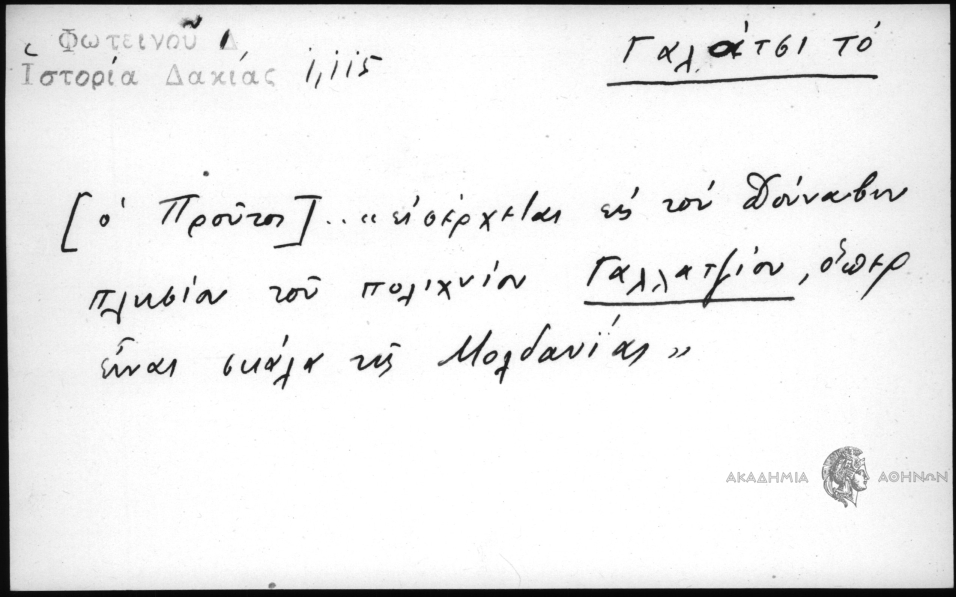 Φωτεινοῦ Δ
Ἱστορία Δακίας 1,115
Γαλάτσι τό
[ὁ Προῦτος].. «εἰσέρχεται εἰς τὸν Δούναβιν
πλησίον τοῦ πολιχνίου Γαλλατζίου, ὅπερ
εἶναι σκάλα τῆς Μολδαυΐας»
ΑΚΑΔΗΜΙΑ ΑΘΗΝΩΝ